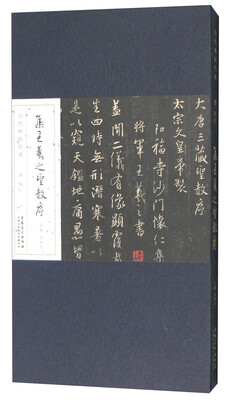 大唐三藏聖教序
太宗文皇帝製
弘福寺沙門懷仁集
將軍王羲之書
蓋聞二儀有像顯覆載
生四時無形潛寒暑以
是以窺天鑑地庸愚皆
集王羲之聖教序